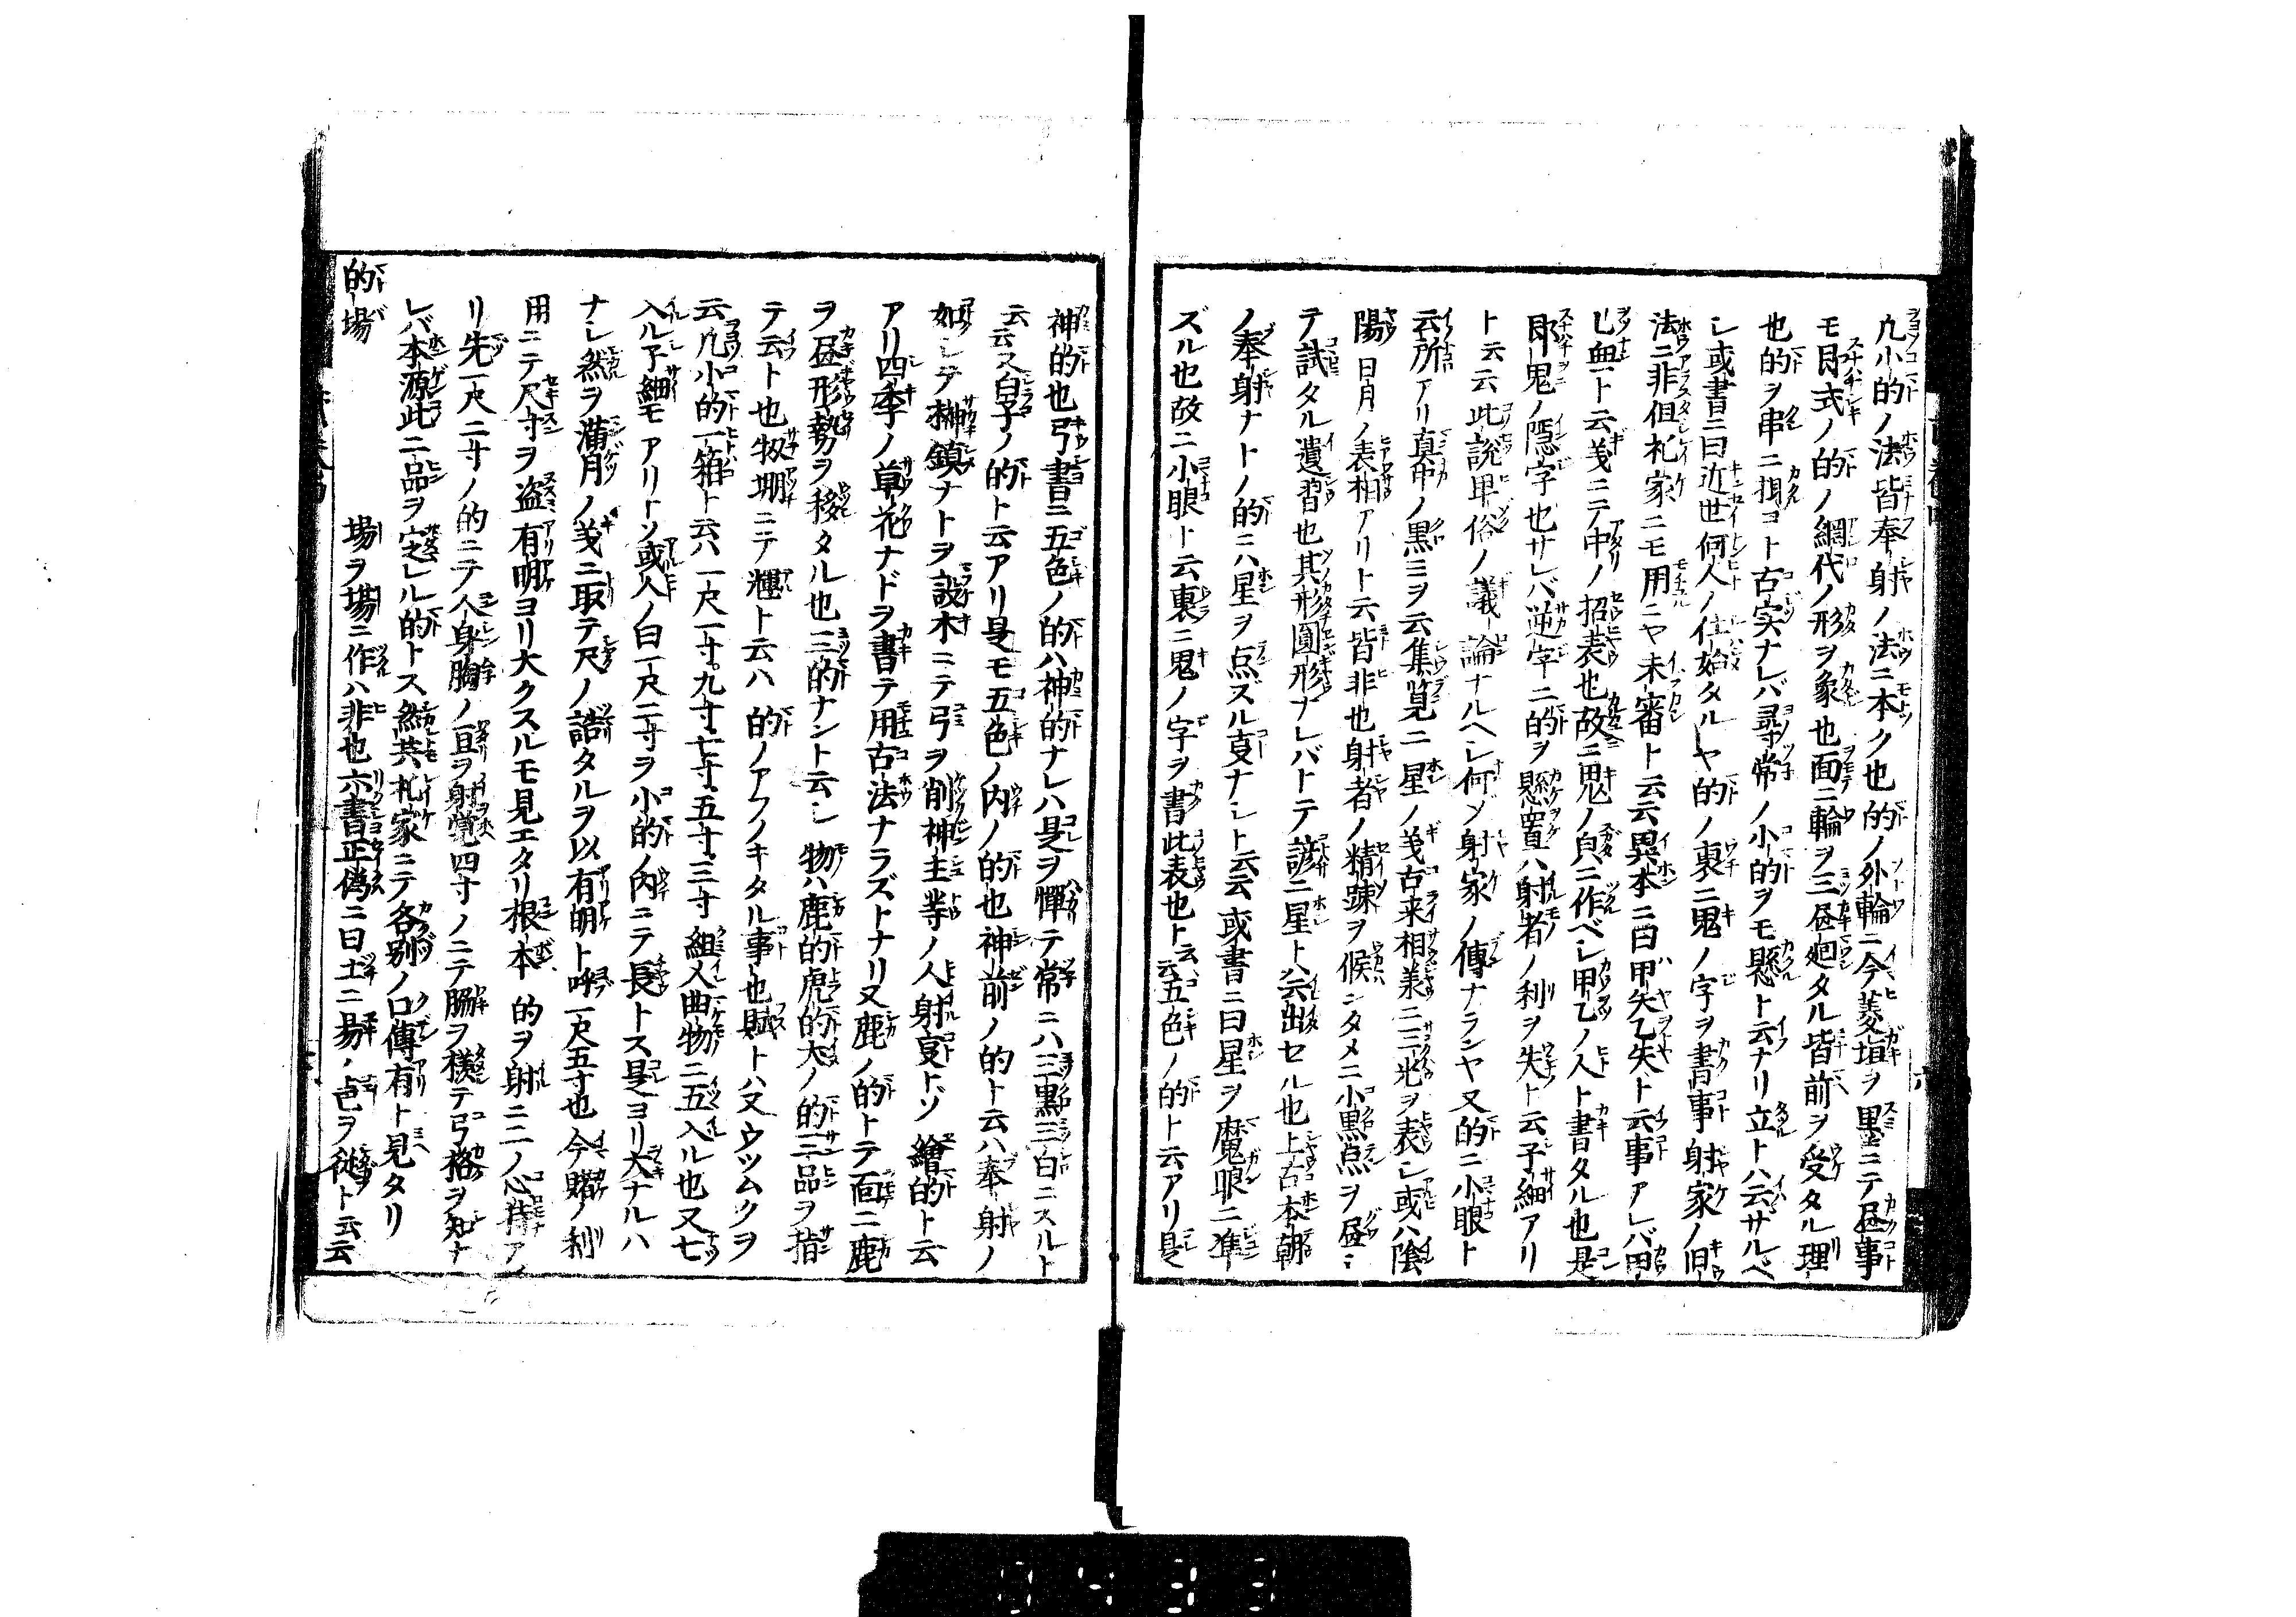 凡小的ノ法皆奉射ノ法ニ本ク也的ノ外輪ニ今菱垣ヲ墨ニテ昼事
モ月式ノ的ノ網代ノ形ヲ象也面ニ輪ヲ三昼廻タル皆前ヲ受タル理
也的ヲ串ニ挧コト古実ナレバ尋常ノ小的ヲモ懸ト云ナリ立トハ云サルベ
シ或書ニ曰近世何人ノ仕始タルヤ的ノ裏ニ鬼ノ字ヲ書事射家ノ旧
法ニ非但礼家ニモ用ニヤ未審ト云云異本ニ曰甲矢乙矢ト云事アレバ甲
乙無ト云義ニテ中ノ招表也故ニ鬼ノ㒵ニ作ベシ甲乙ノ人ト書タル也是
即鬼ノ隠字也サレバ逆字ニ的ヲ懸置ハ射者ノ利ヲ失ト云子細アリ
ト云云此説卑俗ノ議論ナルヘシ何ゾ射家ノ傳ナランヤ又的ニ小眼ト
云所アリ真中ノ黒ミヲ云集覧ニ星ノ義古来相兼ニ三光ヲ表シ或ハ陰
陽日月ノ表相アリト云皆非也射者ノ精踈ヲ候ンタメニ小黒点ヲ昼
テ試タル遺習也其形圓形ナレバトテ諺ニ星トハ云出セル也上古本朝
ノ奉射ナトノ的ニハ星ヲ点ズル叓ナシト云云或書ニ曰星ヲ魔眼ニ準
ズル也故ニ小眼ト云裏ニ鬼ノ字ヲ書此表也ト云云五色ノ的ト云アリ是
神的也弓書ニ五色ノ的ハ神的ナレハ是ヲ憚テ常ニハ三黒三白ニスルト
云云又皇子ノ的ト云アリ是モ五色ノ内ノ的也神前ノ的ト云ハ奉射ノ
如シテ榊鎮ナトヲ設木ニテ弓ヲ削神主等ノ人射叓トソ繪的ト云
アリ四季ノ草花ナドヲ書テ用古法ナラズトナリ又鹿ノ的トテ面ニ鹿
ヲ昼形勢ヲ移タル也三的ナント云シ物ハ鹿的虎的犬ノ的三品ヲ指
テ云ト也扨堋ニテ糎ト云ハ的ノアフノキタル事也賦トハ又ウツムクヲ
云凡小的一箱ト云ハ一尺一寸九寸七寸五寸三寸組入曲物ニ五入ル也又七
入ル子細モアリトソ或人ノ曰一尺二寸ヲ小的ノ内ニテ長トス是ヨリ大ナルハ
ナシ然ヲ満月ノ義ニ取テ尺ノ詰タルヲ以有明ト呼一尺五寸也今賭ノ利
用ニテ尺寸ヲ盗有明ヨリ大クスルモ見エタリ根本的ヲ射ニ二ノ心持ア
リ先一尺二寸ノ的ニテ人身胸ノ亘ヲ射覚四寸ノニテ腦ヲ様テ弓格ヲ知ナ
レバ本源此ニ品ヲ定レル的トス然共礼家ニテ各別ノ口傳有ト見タリ
的場　場ヲ塲ニ作ハ非也六書正偽ニ曰土ニ易ノ㫖ヲ従ト云云